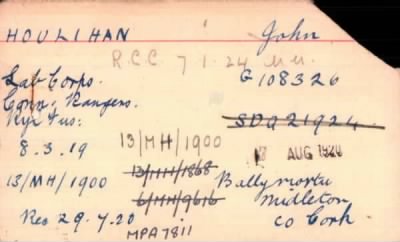 HOULIHAN John
R.C.C. 7.1.24 M.M.
Lab Corps. G 108326
Conn: Rangers.
SDG 21924
13/MH/1900
8.3.19
7 AUG 1920
13/MH/1868
13/MH/1900
6/MH/9616
Midleton
Co Cork
Rec 29.7.20
MPA7811